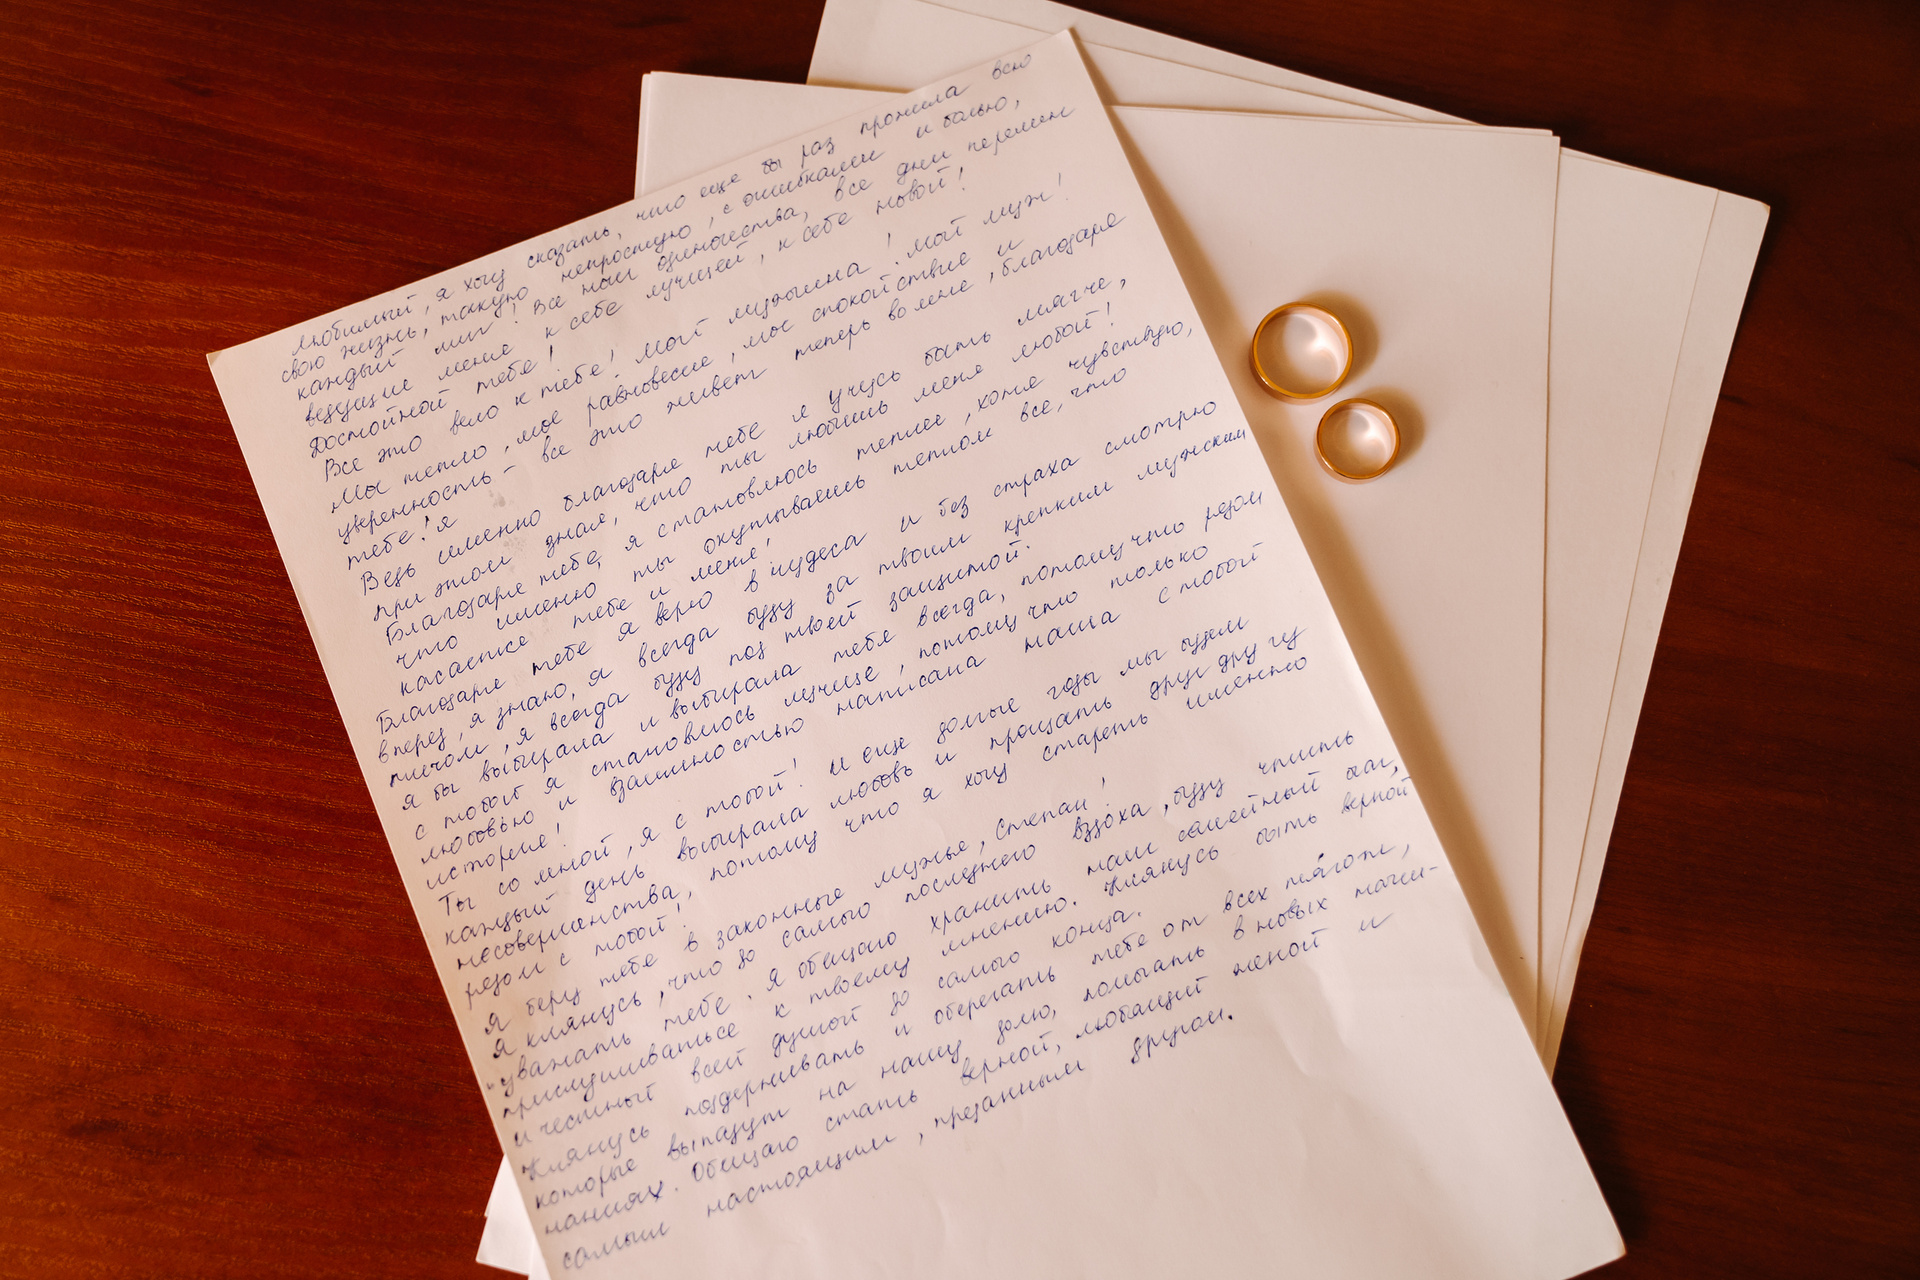 Любимый, я хочу сказать, что еще бы раз прожила всю
свою жизнь, такую непростую, с ошибками и болью,
каждый миг! Все мои одиночества, все дни перемен
ведущие меня к себе лучшей, к себе новой!
Достойной тебе!
Все это вело к тебе! Мой мужчина! Мой муж!
Мы тепло, мое равновесие, мое спокойствие и
уверенность - все это живет теперь во мне, благодаре
тебе! Я
Ведь именно благодаре тебе я учусь быть мягче,
при этом зная, что ты любишь меня любой!
Благодаре тебе, я становлюсь теплее, хотя чувствую,
что именно ты окутываешь теплом все, что
касаетке тебе и меня!
Благодаре тебе я верю в чудеса и без страха смотрю
вперед, я знаю, я всегда буду за твоим крепким мужским
плечом, я всегда буду под твоей защитой.
Я бы выбирала и выбирала тебе всегда, потому что редом
с тобой я становлюсь лучше, потому что только
любовью и взаимностью написана наша с тобой
история!
Ты со мной, я с тобой! И еще долгие годы мы будем
каждый день выбирала любовь и прощать друг другу
несовершенства, потому что я хочу стареть именно
редом с тобой!
Я беру тебе в законные мужье, Степан!
Я клянусь, что до самого последнего вздоха, буду чтить
уважать тебе. Я обещаю хранить наш семейный очаг,
прислушиватьсе к твоему мнению. Клянусь быть верной
и честный всей душой до самого конца.
Клянусь поддерживать и оберегать тебе от всех тягот,
которые выпадут на нашу долю, помогать в новых начи-
наниях. Обещаю стать верной, любящий женой и
самым настоящим, преданным другом.